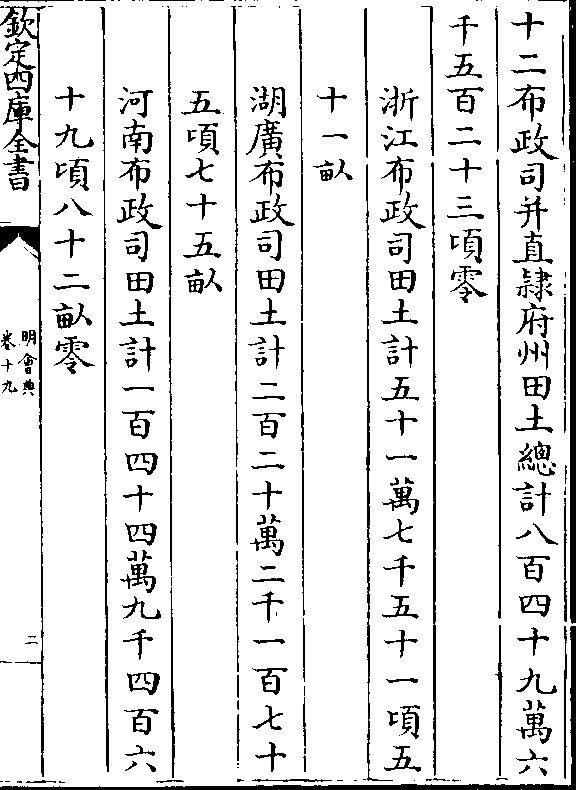 十二布政司并直隸府州田土總計八百四十九萬六
千五百二十三頃零
浙江布政司田土計五十一萬七千五十一頃五
十一畝
湖廣布政司田土計二百二十萬二千一百七十
五頃七十五畝
河南布政司田土計一百四十四萬九千四百六
十九頃八十二畝零
欽定四庫全書
明會典
卷十九
二